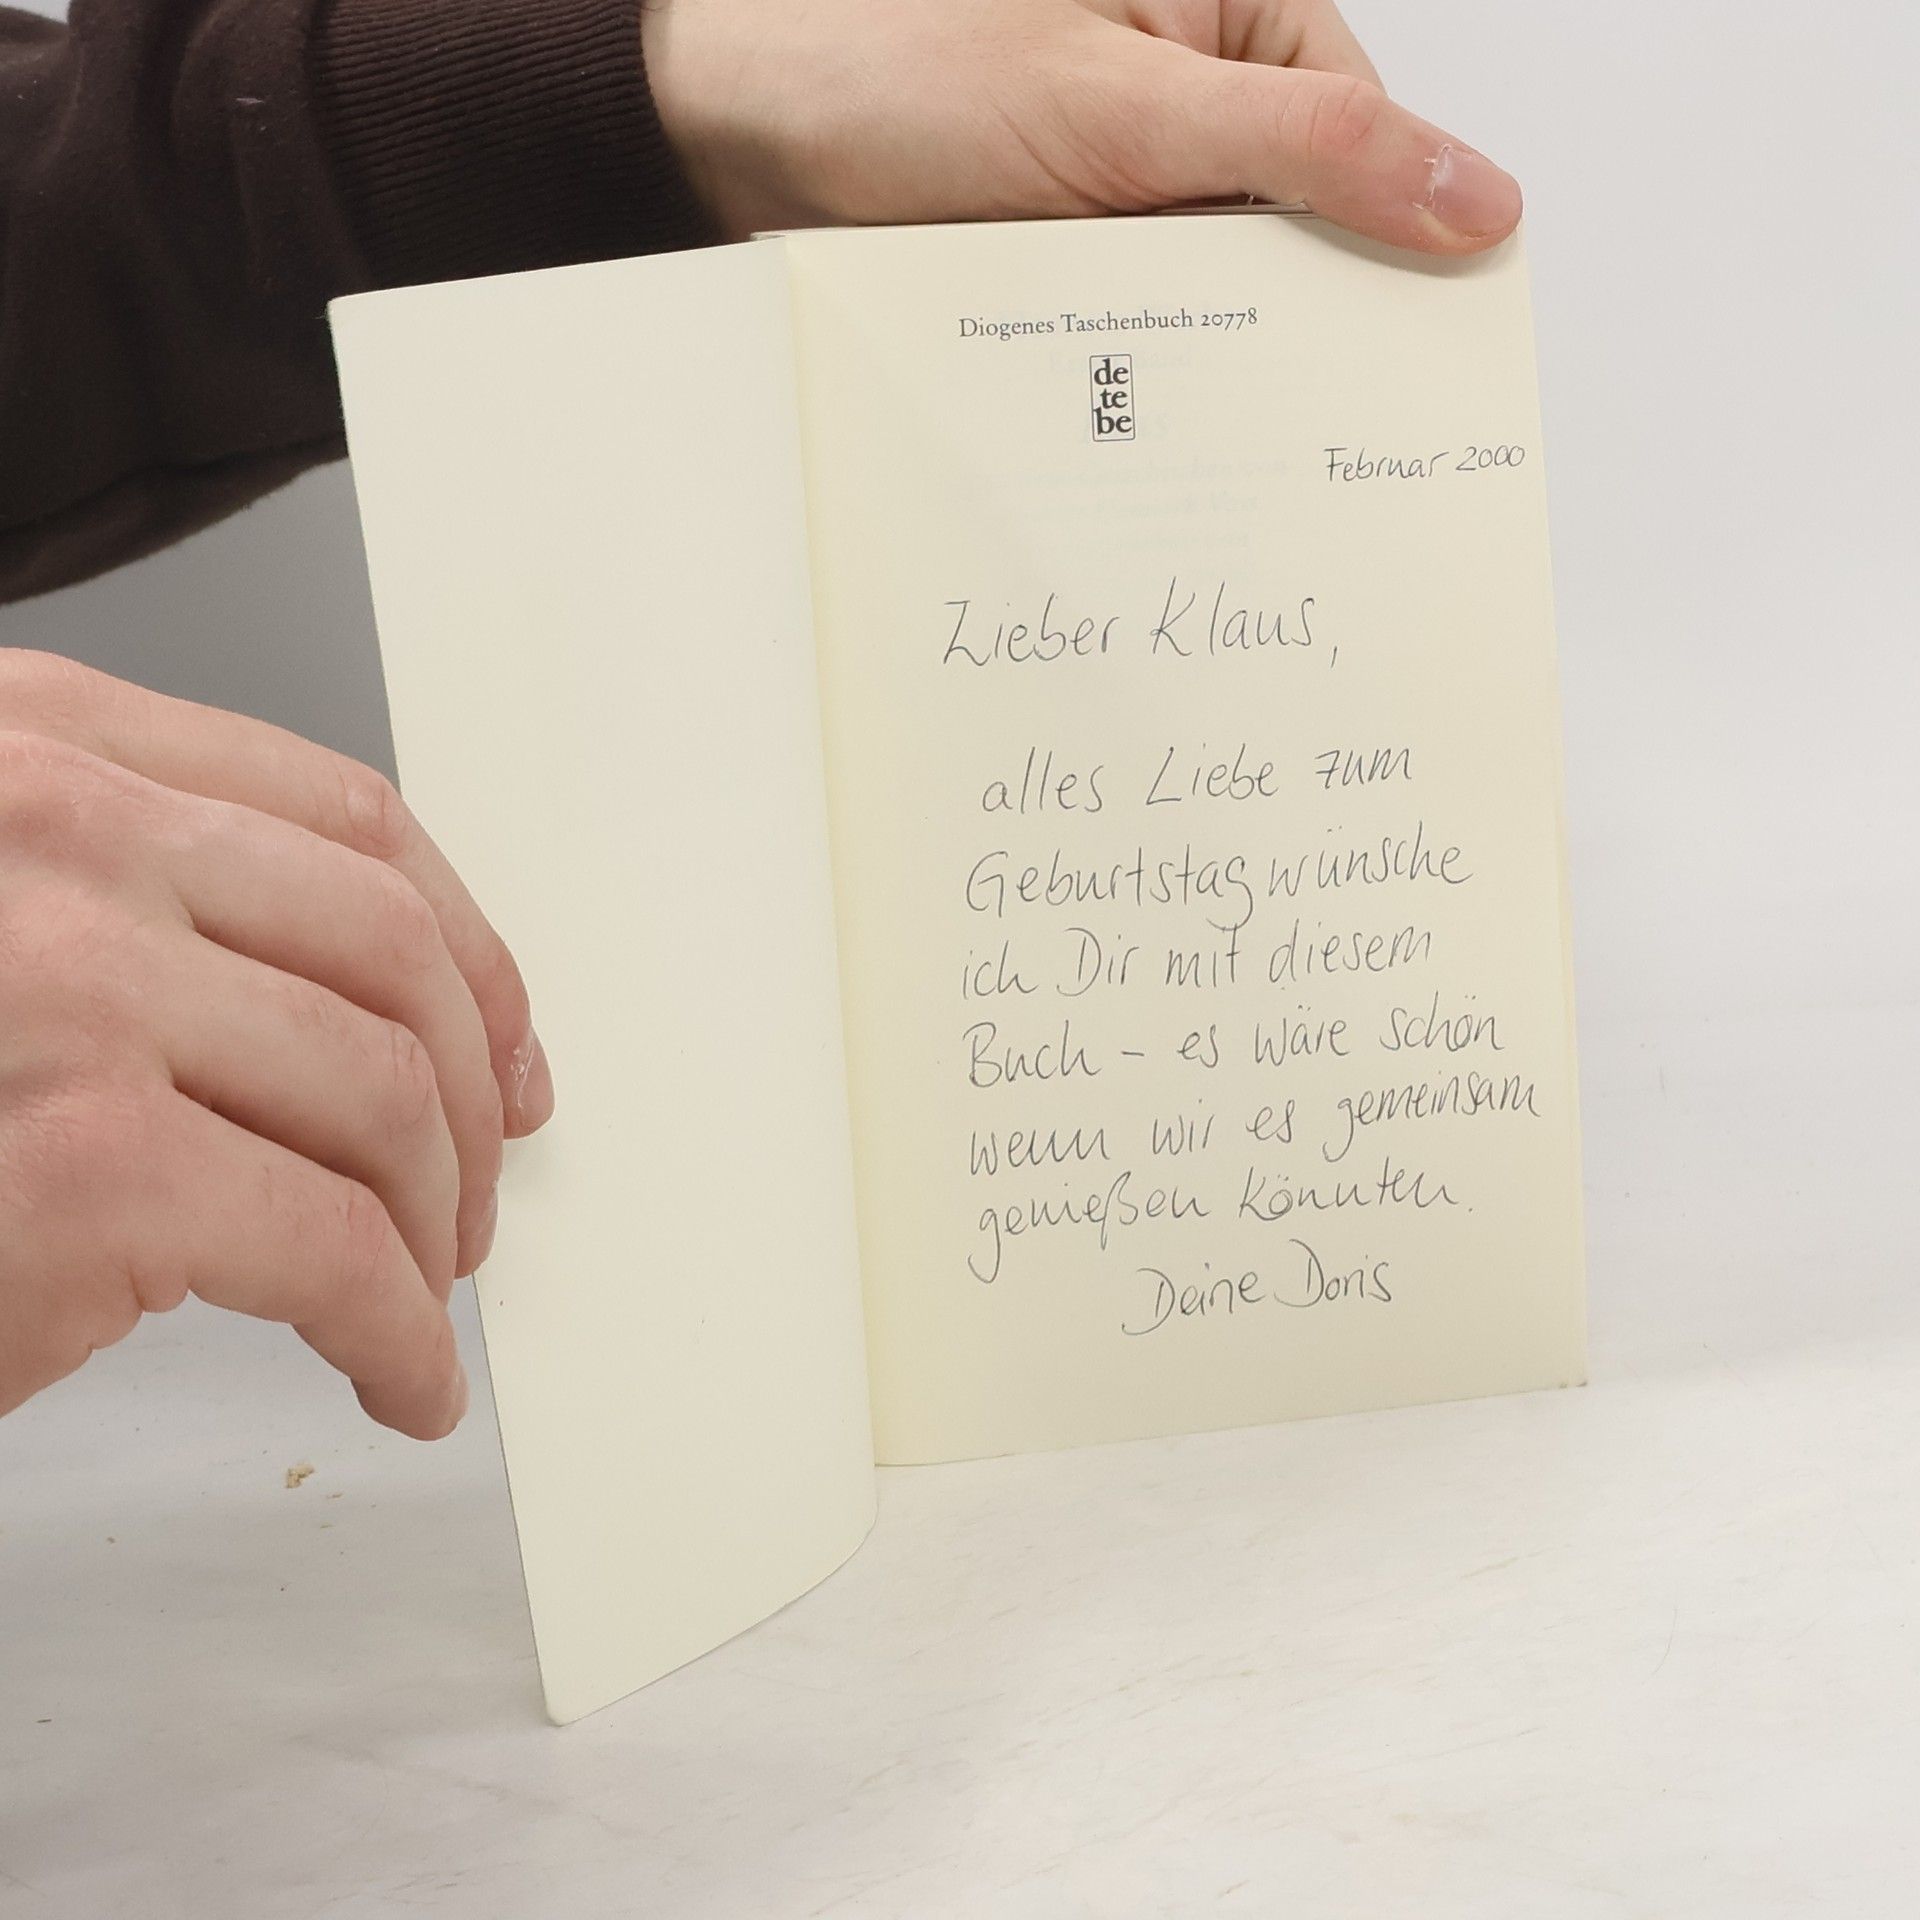 Diogenes Taschenbuch 20778
de
te
be
Februar 2000
Lieber Klaus,
alles Liebe zum
Geburtstag wünsche
ich Dir mit diesem
Buch – es wäre schön
wenn wir es gemeinsam
genießen könnten.
Deine Doris